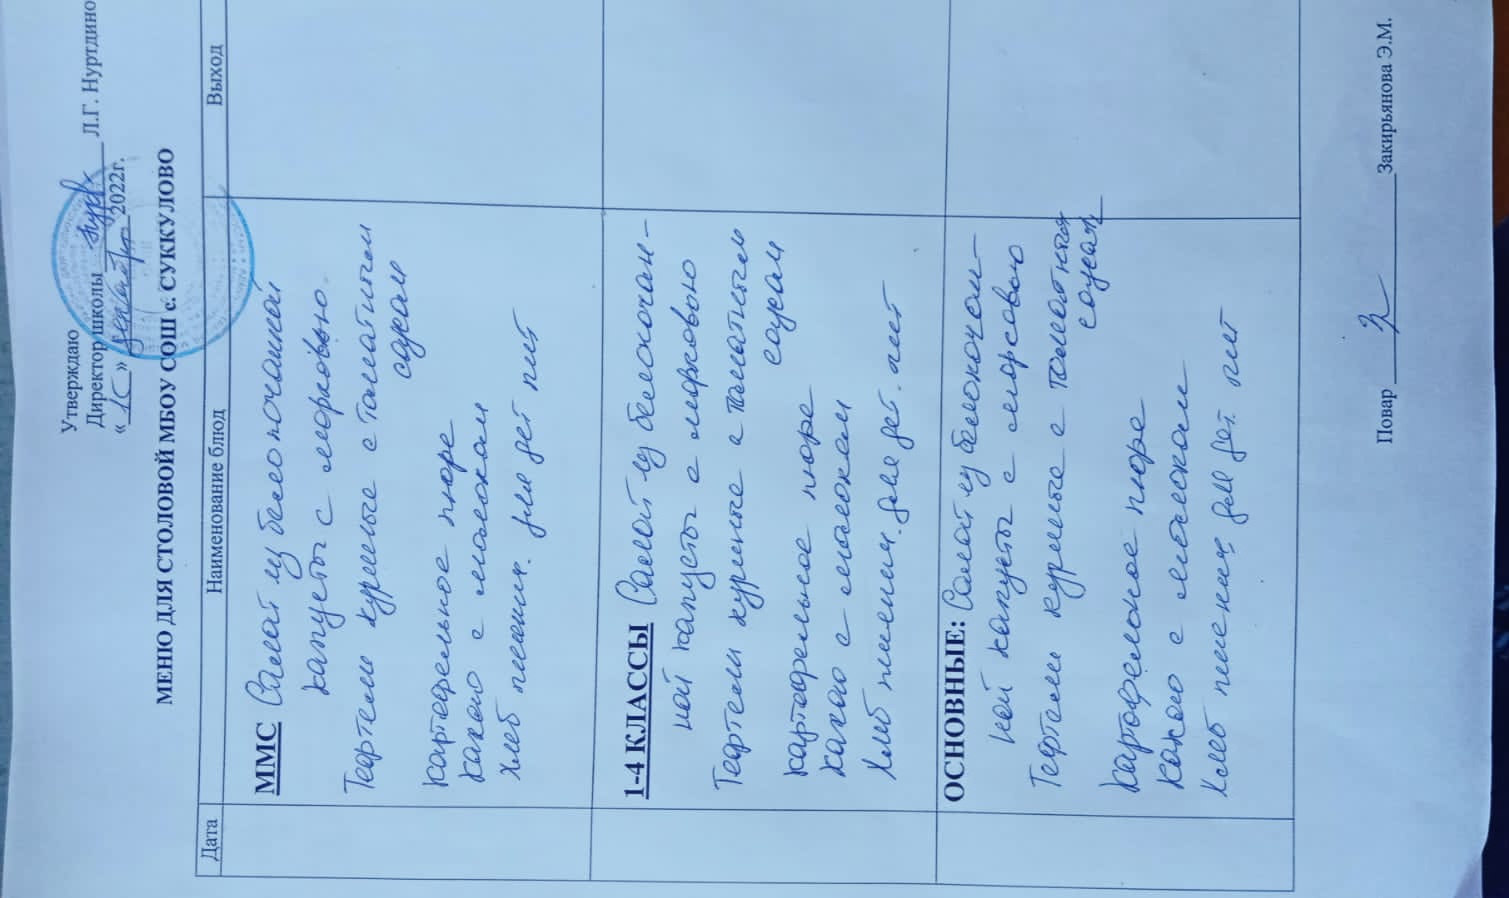 Утверждаю
Директор школы Л.Г. Нуртдино
« » 2022г.
МЕНЮ ДЛЯ СТОЛОВОЙ МБОУ СОШ с. СУККУЛОВО
Дата Наименование блюд Выход
ММС Салат из белокочанной
капусты с морковью.
Тефтели куриные с томатным
соусом
картофельное пюре
какао с молоком
Хлеб пшенич. для дет пит
1-4 КЛАССЫ Салат из белокочан-
ной капусты с морковью
Тефтели куриные с томатным
соусом
картофельное пюре
какао с молоком
Хлеб пшенич. для дет. пит
ОСНОВНЫЕ: Салат из белокочан-
ной капусты с морковью
Тефтели куриные с томатным
соусом
Картофельное пюре
какао с молоком
Хлеб для дет. пит
Повар Закирьянова Э.М.